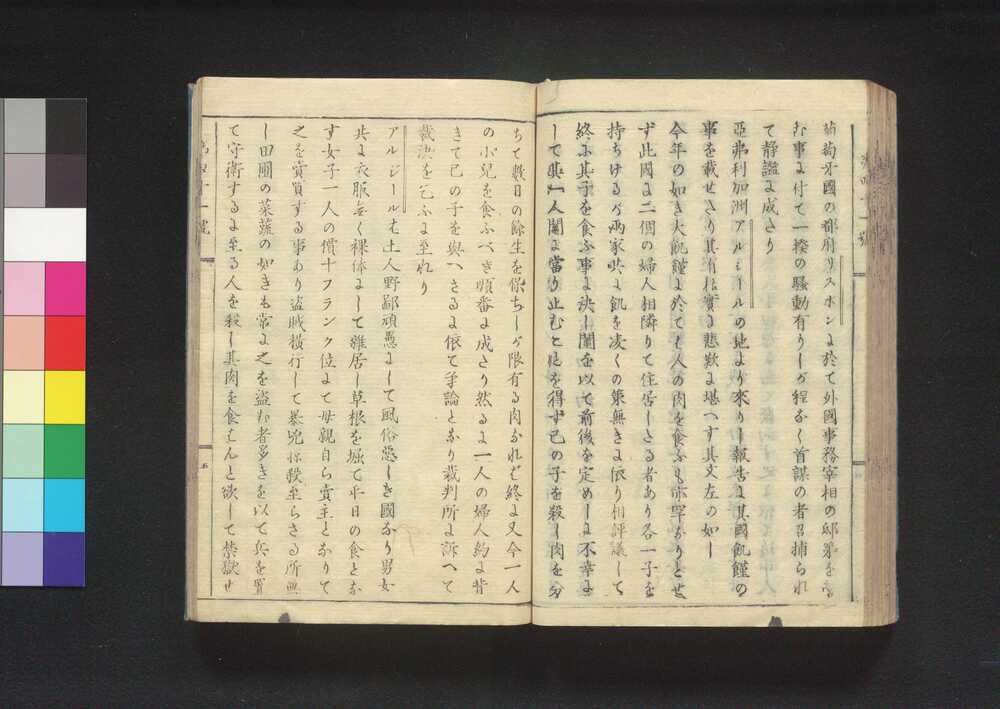 葡萄牙國の都府リスボンに於て外國事務宰相の邸第を
む事に付て一揆の騷動有りしが程なく首謀の者召捕られ
て静謐に成たり
亞弗利加洲アルジールの地より來りし報告に其國飢饉の
事を載せたり其有様實に悲歎に堪へす其文左の如し
今年の如き大飢饉に於ても人の肉を食ふも亦罕なりとせ
ず此國に二個の婦人相隣りて住居したる者あり各一子を
持ちけるが兩家共に飢を凌くの策無きに依り相評議して
終に其子を食ふ事に決し鬮を以て前後を定めしに不幸に
して其一人鬮に當り止むことを得ず己の子を殺し肉を分
ちて數日の餘生を保ちしが限有る肉なれど終に又今一人
の小兒を食ふべき順番に成たり然るに一人の婦人約に背
きて己の子を與へさるに依て爭論となり裁判所に訴へて
裁決を乞ふに至れり
アルジールは土人野鄙頑愚にして風俗惡しき國なり男女
共に衣服無く裸体にして雜居し草根を堀て平日の食とな
す女子一人の價十フランク位にて母親自ら賣主となりて
之を賣買する事あり盗賊横行して暴兇掠殺至らさる所無
し田圃の菜蔬の如きも常に之を盗む者多きを以て兵を置
て守衛するに至る人を殺し其肉を食はんと欲して禁獄せ